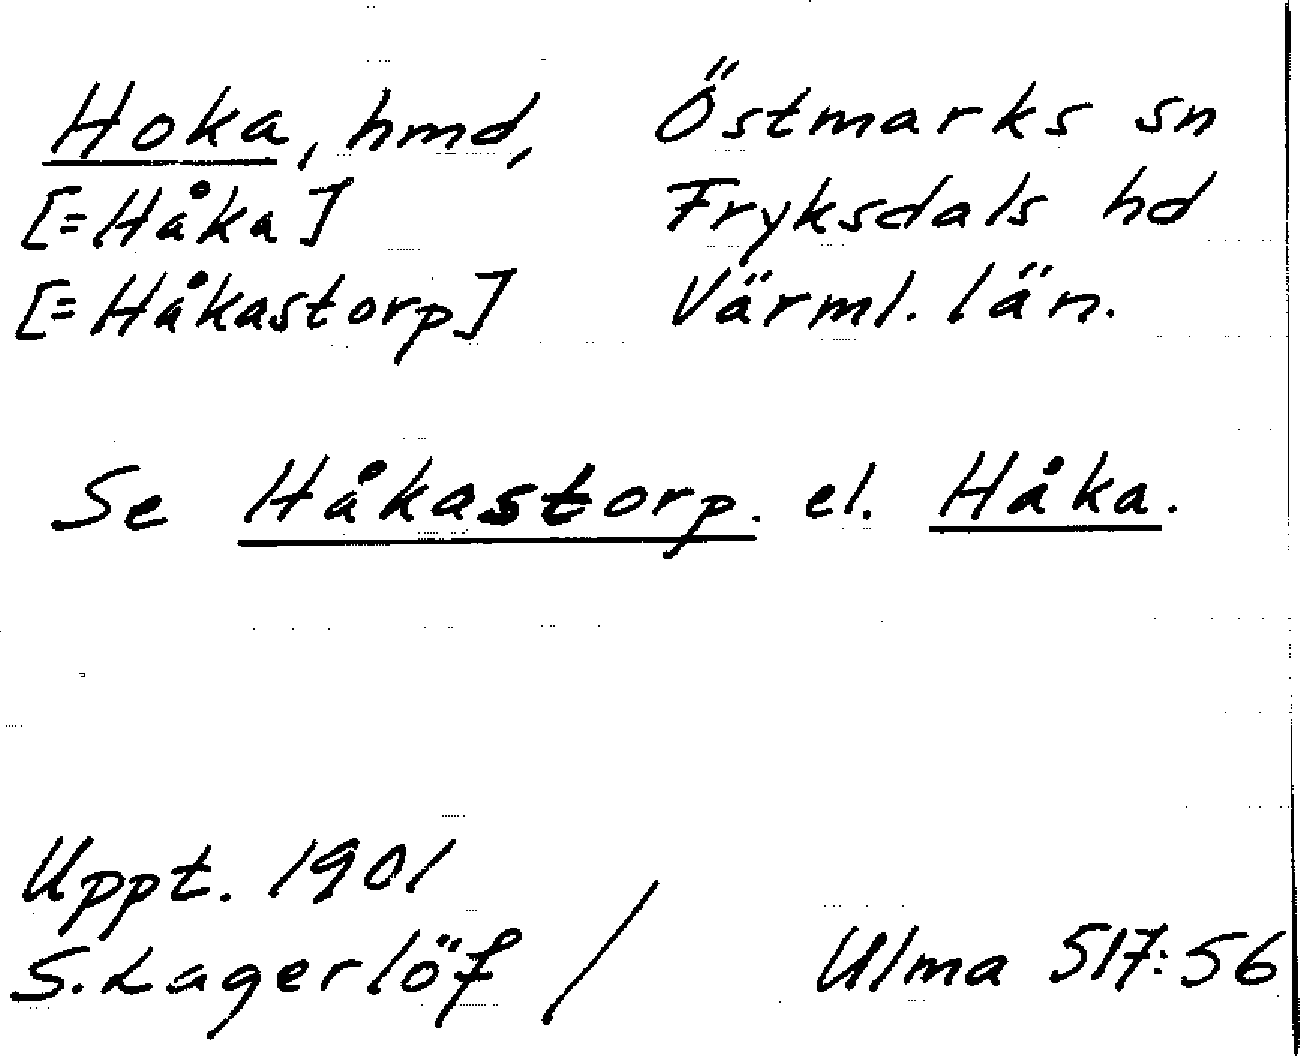 Hoka, hmd, Östmarks sn
[=Håka] Fryksdals hd
[=Håkastorp] Värml. län.
Se Håkastorp. el. Håka.
Uppt. 1901
S. Lagerlöf / Ulma 517:56